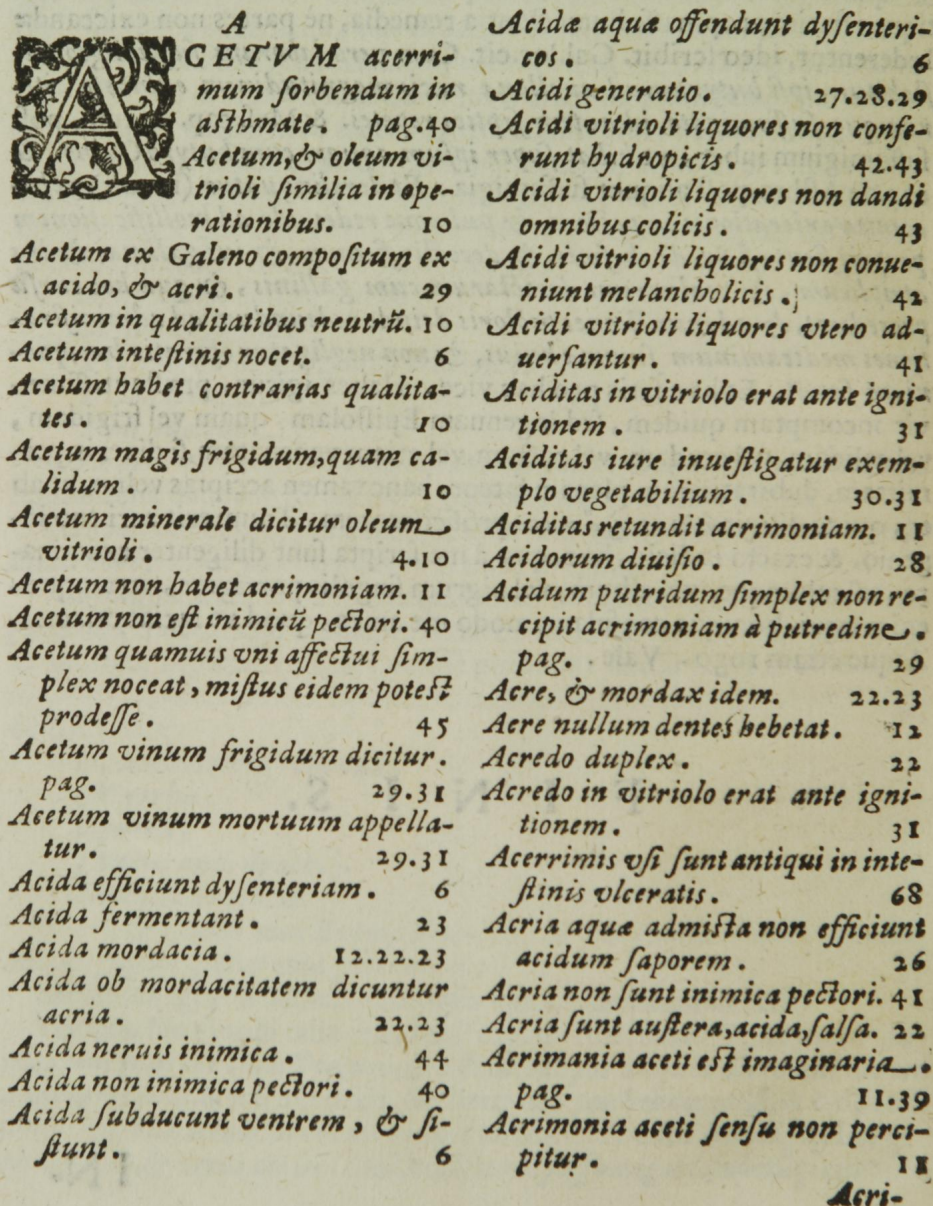 A
ACETVM acerri-
mum ſorbendum in
aſthmate. pag.40
Acetum,& oleum vi-
trioli ſimilia in ope-
rationibus. 10
Acetum ex Galeno compoſitum ex
acido, & acri. 29
Acetum in qualitatibus neutrũ. 10
Acetum inteſtinis nocet. 6
Acetum habet contrarias qualita-
tes. 10
Acetum magis frigidum,quam ca-
lidum. 10
Acetum minerale dicitur oleum
vitrioli. 4.10
Acetum non habet acrimoniam. 11
Acetum non eſt inimicũ pectori. 40
Acetum quamuis vni affectui ſim-
plex noceat, miſtus eidem poteſt
prodeſſe. 45
Acetum vinum frigidum dicitur.
pag. 29.31
Acetum vinum mortuum appella-
tur. 29.31
Acida efficiunt dyſenteriam. 6
Acida fermentant. 23
Acida mordacia. 12.22.23
Acida ob mordacitatem dicuntur
acria. 22.23
Acida neruis inimica. 44
Acida non inimica pectori. 40
Acida ſubducunt ventrem, & ſi-
ſtunt. 6
Acidæ aquæ offendunt dyſenteri-
cos. 6
Acidi generatio. 27.28.29
Acidi vitrioli liquores non confe-
runt hydropicis. 42.43
Acidi vitrioli liquores non dandi
omnibus colicis. 43
Acidi vitrioli liquores non conue-
niunt melancholicis. 42
Acidi vitrioli liquores vtero ad-
uerſantur. 41
Aciditas in vitriolo erat ante igni-
tionem. 31
Aciditas iure inueſtigatur exem-
plo vegetabilium. 30.31
Aciditas retundit acrimoniam. 11
Acidorum diuiſio. 28
Acidum putridum ſimplex non re-
cipit acrimoniam à putredine.
pag. 29
Acre, & mordax idem. 22.23
Acre nullum dentes hebetat. 12
Acredo duplex. 22
Acredo in vitriolo erat ante igni-
tionem. 31
Acerrimis vſi ſunt antiqui in inte-
ſtinis vlceratis. 68
Acria aquæ admiſta non efficiunt
acidum ſaporem. 26
Acria non ſunt inimica pectori. 41
Acria ſunt auſtera,acida,ſalſa. 22
Acrimania aceti eſt imaginaria.
pag. 11.39
Acrimonia aceti ſenſu non perci-
pitur. 11
Acri-